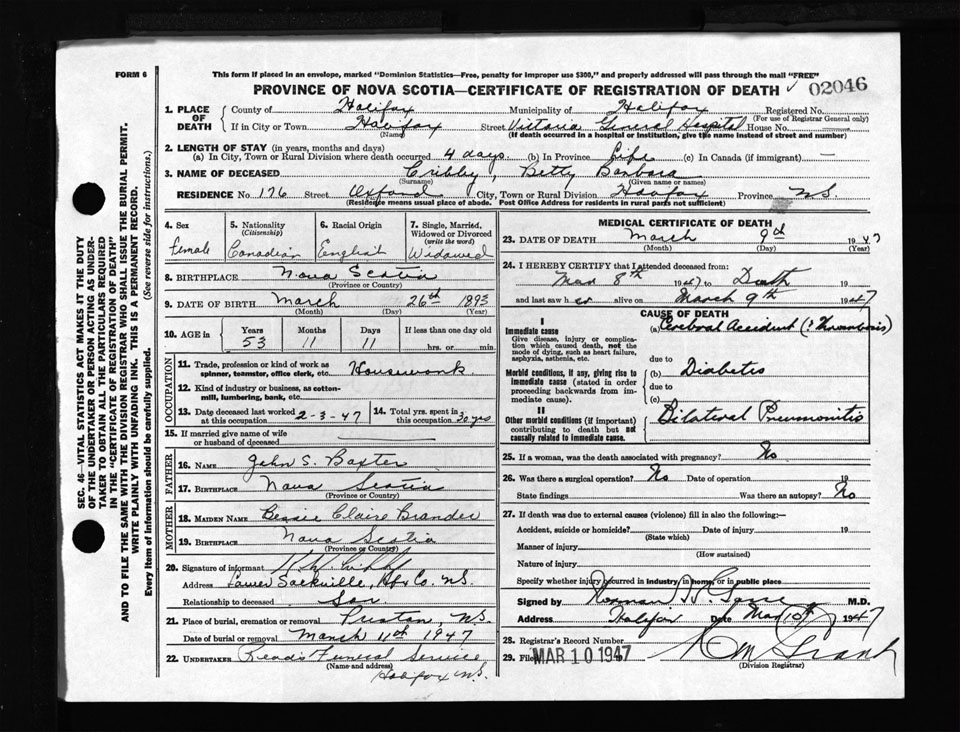 FORM 6
This form if placed in an envelope, marked "Dominion Statistics—Free, penalty for improper use $300," and properly addressed will pass through the mail "FREE"
PROVINCE OF NOVA SCOTIA—CERTIFICATE OF REGISTRATION OF DEATH 02046
1. PLACE OF DEATH County of Halifax Municipality of Halifax Registered No.
(For use of Registrar General only)
If in City or Town Halifax Street Victoria General Hospital House No.
(Name) (If death occurred in a hospital or institution, give the name instead of street and number)
2. LENGTH OF STAY (in years, months and days)
(a) In City, Town or Rural Division where death occurred 4 days. (b) In Province Life (c) In Canada (if immigrant) —
3. NAME OF DECEASED Cribby, Betty Barbara
(Surname) (Given name or names)
RESIDENCE No. 176 Street Oxford City, Town or Rural Division Halifax Province NS
(Residence means usual place of abode. Post Office Address for residents in rural parts not sufficient)
4. Sex Female
5. Nationality (Citizenship) Canadian
6. Racial Origin English
7. Single, Married, Widowed or Divorced (write the word) Widowed
8. BIRTHPLACE Nova Scotia
(Province or Country)
9. DATE OF BIRTH March 26th 1893
(Month) (Day) (Year)
10. AGE in Years 53 Months 11 Days 11 If less than one day old hrs. or min.
OCCUPATION
11. Trade, profession or kind of work as spinner, teamster, office clerk, etc. Housework.
12. Kind of industry or business, as cotton-mill, lumbering, bank, etc.
13. Date deceased last worked at this occupation 2-3-47
14. Total yrs. spent in this occupation 30 yrs
15. If married give name of wife or husband of deceased
FATHER
16. NAME John S. Baxter
17. BIRTHPLACE Nova Scotia
(Province or Country)
MOTHER
18. MAIDEN NAME Bessie Claire Brander
19. BIRTHPLACE Nova Scotia
(Province or Country)
20. Signature of informant
Address Lower Sackville, Hfx Co. N.S.
Relationship to deceased Son
21. Place of burial, cremation or removal Preston, N.S.
Date of burial or removal March 11th 1947
22. UNDERTAKER Read's Funeral Service
(Name and address) Halifax N.S.
MEDICAL CERTIFICATE OF DEATH
23. DATE OF DEATH March 9th 1947
(Month) (Day) (Year)
24. I HEREBY CERTIFY that I attended deceased from:
Mar 8th 1947 to Death
and last saw her alive on March 9th 1947
CAUSE OF DEATH
I
Immediate cause
Give disease, injury or complication which caused death, not the mode of dying, such as heart failure, asphyxia, asthenia, etc.
(a) Cerebral Accident (? Thrombosis)
due to
Morbid conditions, if any, giving rise to immediate cause (stated in order proceeding backwards from immediate cause).
(b) Diabetes
due to
(c)
II
Other morbid conditions (if important) contributing to death but not causally related to immediate cause.
Bilateral Pneumonitis
25. If a woman, was the death associated with pregnancy? No
26. Was there a surgical operation? No Date of operation 19
State findings Was there an autopsy? No
27. If death was due to external causes (violence) fill in also the following:—
Accident, suicide or homicide? Date of injury 19
(State which)
Manner of injury
(How sustained)
Nature of injury
Specify whether injury occurred in industry, in home, or in public place
Signed by Norman B. M.D.
Address Halifax Date Mar 10th 1947
28. Registrar's Record Number
29. Filed MAR 10 1947
(Division Registrar)
SEC. 46—VITAL STATISTICS ACT MAKES IT THE DUTY OF THE UNDERTAKER OR PERSON ACTING AS UNDERTAKER TO OBTAIN ALL THE PARTICULARS REQUIRED IN THE "CERTIFICATE OF REGISTRATION OF DEATH"
AND TO FILE THE SAME WITH THE DIVISION REGISTRAR WHO SHALL ISSUE THE BURIAL PERMIT.
WRITE PLAINLY WITH UNFADING INK. THIS IS A PERMANENT RECORD.
Every item of information should be carefully supplied. (See reverse side for instructions.)